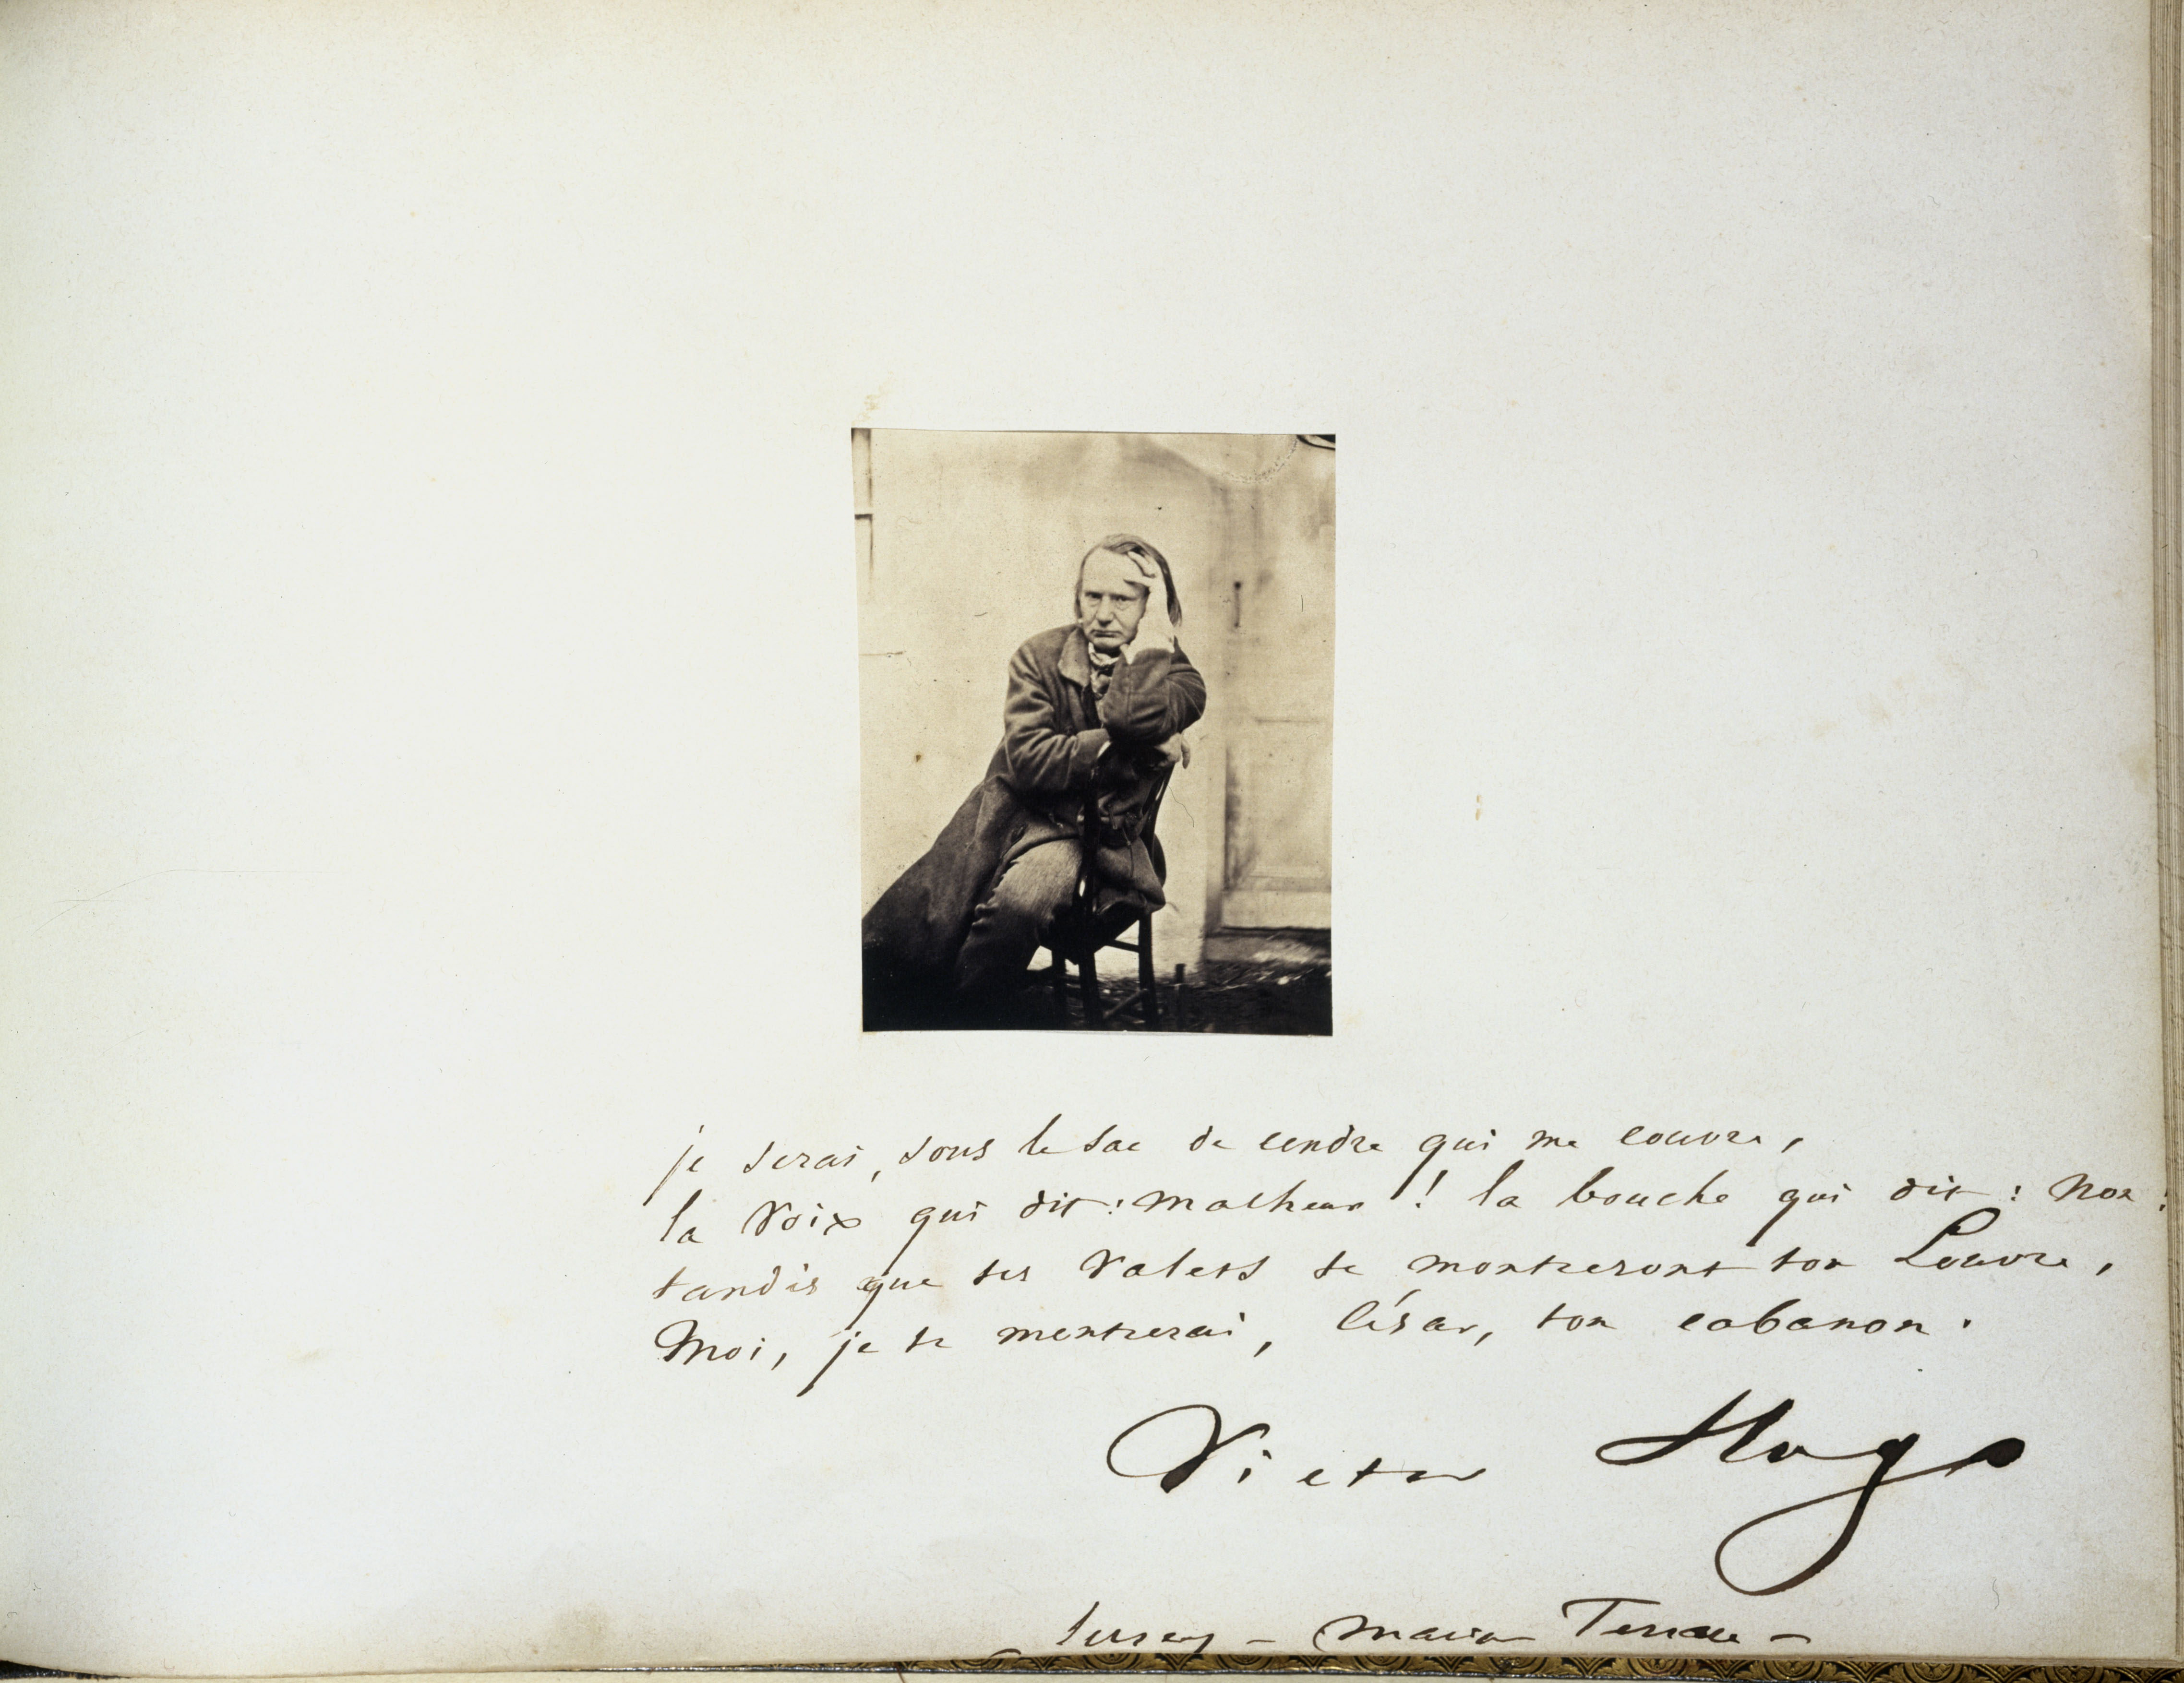 je serai, sous le sac de cendre qui me couvre,
la voix qui dit : malheur ! la bouche qui dit : non !
tandis que tes valets te montreront ton Louvre,
Moi, je te montrerai, César, ton cabanon.
Victor Hugo
Jersey – marine Terrace –